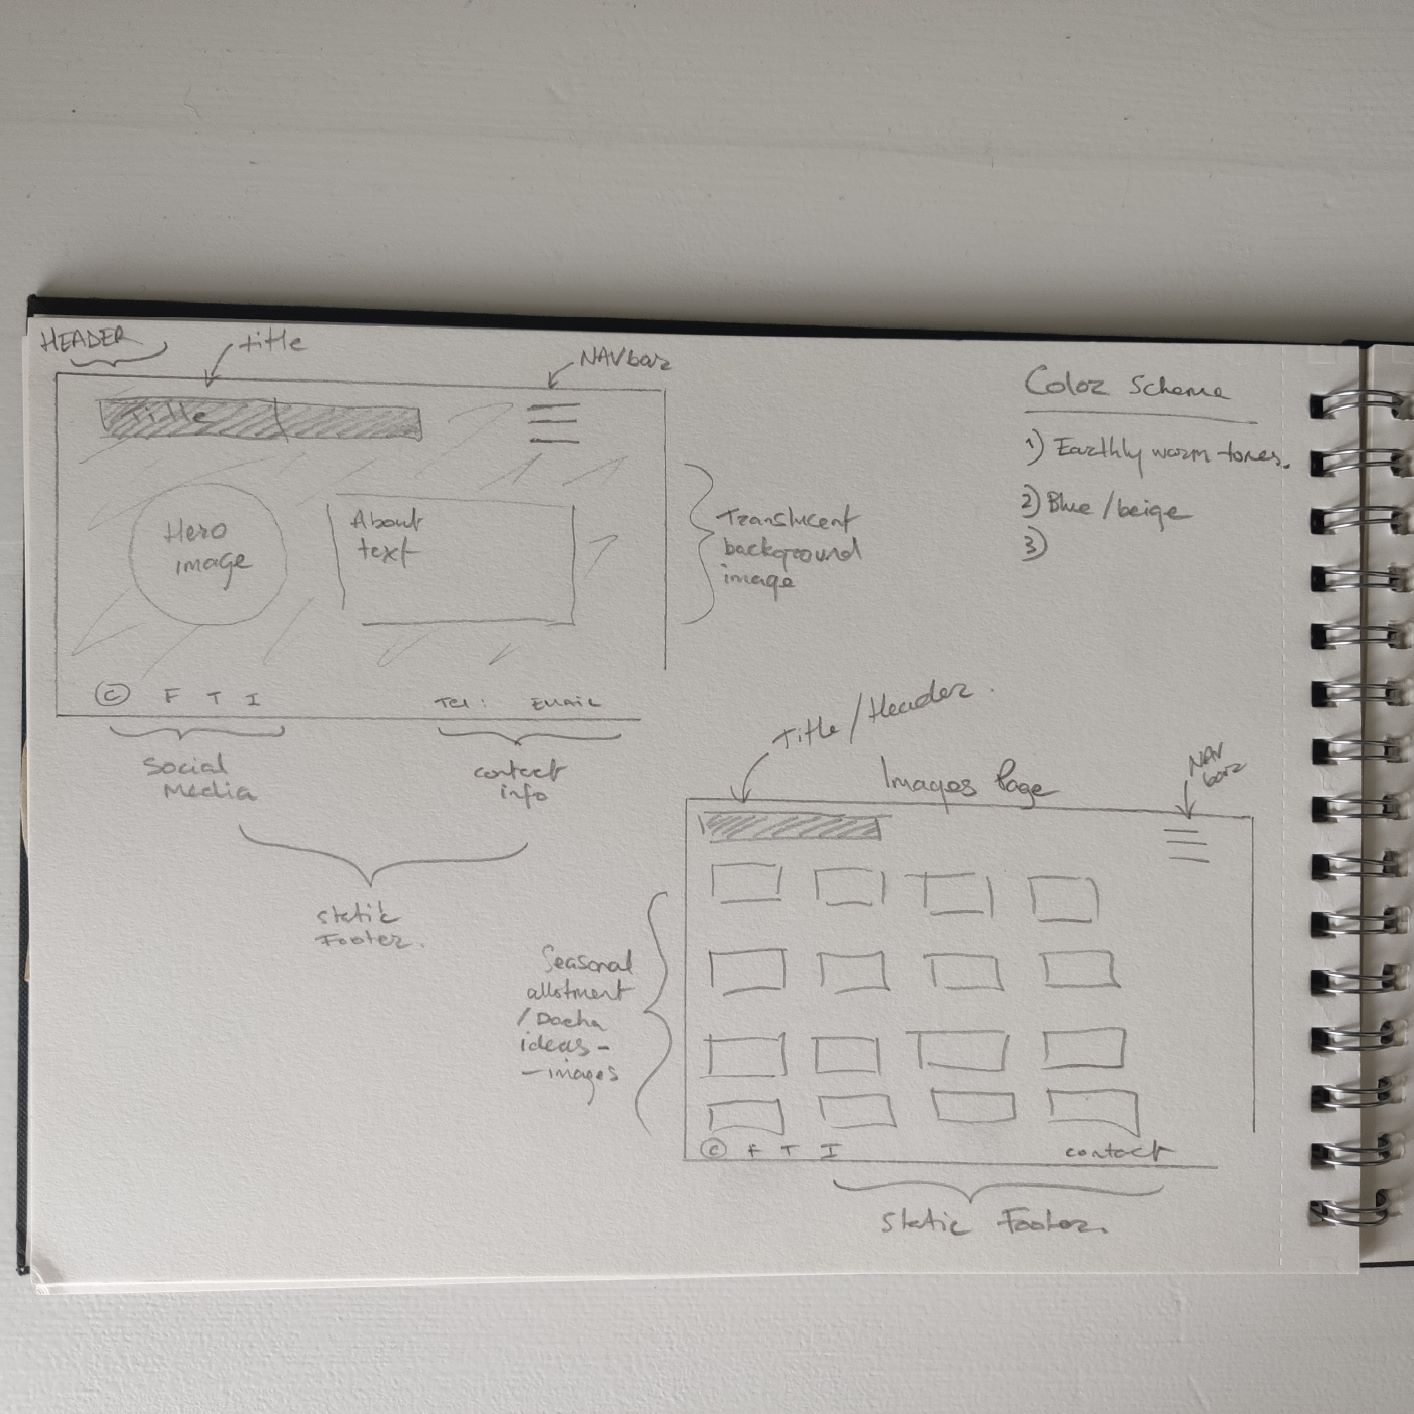 HEADER
title
NAVbar
Title
Hero
image
About
text
Translucent
background
image
© F T I
Tel: Email
Social
Media
contact
info
Static
Footer.
Color Scheme
1) Earthly warm tones.
2) Blue/beige
3)
Title/Header.
Images Page
NAV
bar
Seasonal
allotment
/Dacha
ideas -
- images
© F T I
contact
Static Footer.